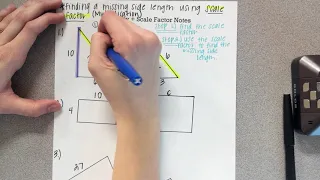 finding a missing side length using scale
factor (Multiplication)
Scale Factor Notes
Step 1: find the scale
factor
Step 2: use the scale
factor to find the
missing side
length.
10
6
3
10
6
4
3)
27